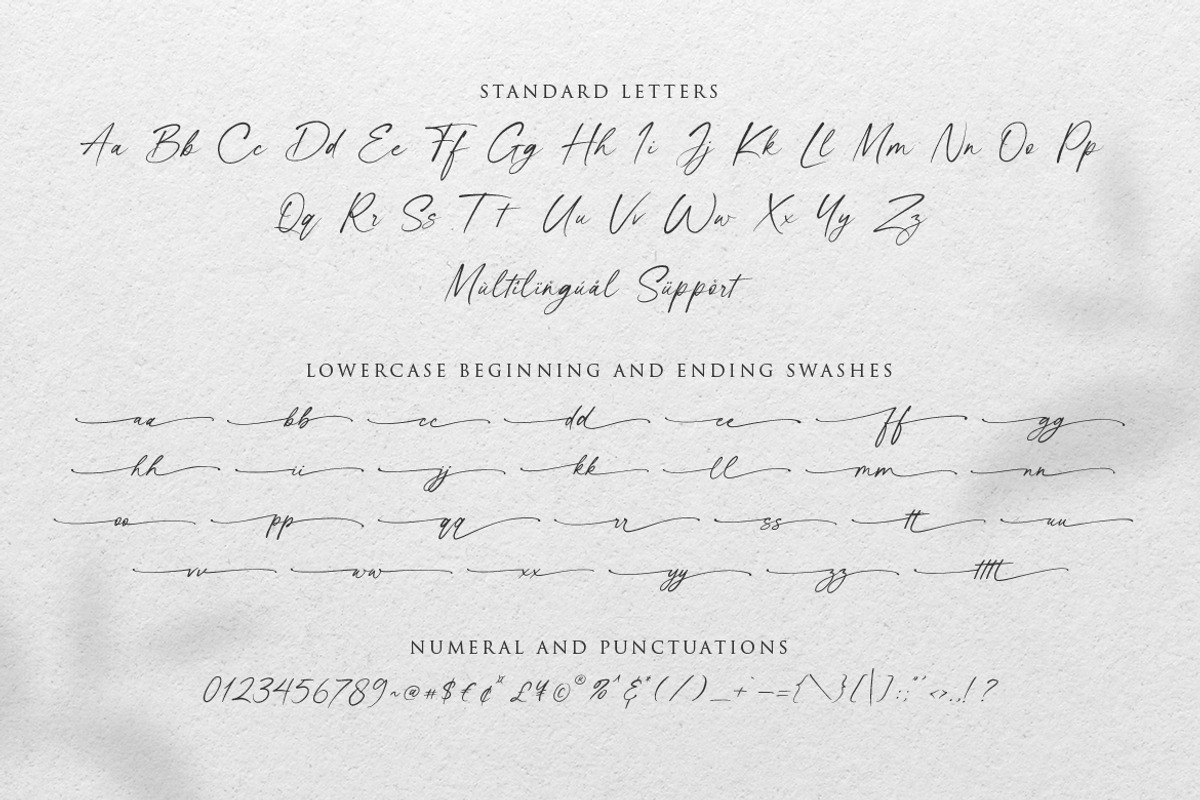 STANDARD LETTERS
Aa Bb Cc Dd Ee Ff Gg Hh Ii Jj Kk Ll Mm Nn Oo Pp
Qq Rr Ss Tt Uu Vv Ww Xx Yy Zz
Mùltílïngúàl Süppórt
LOWERCASE BEGINNING AND ENDING SWASHES
aa bb cc dd ee ff gg
hh ii jj kk ll mm nn
oo pp qq rr ss tt uu
vv ww xx yy zz tttt
NUMERAL AND PUNCTUATIONS
0123456789~@#$€¢¤£¥©®%^&*(/)_+`-={\}[|]:;"'<>.,!?